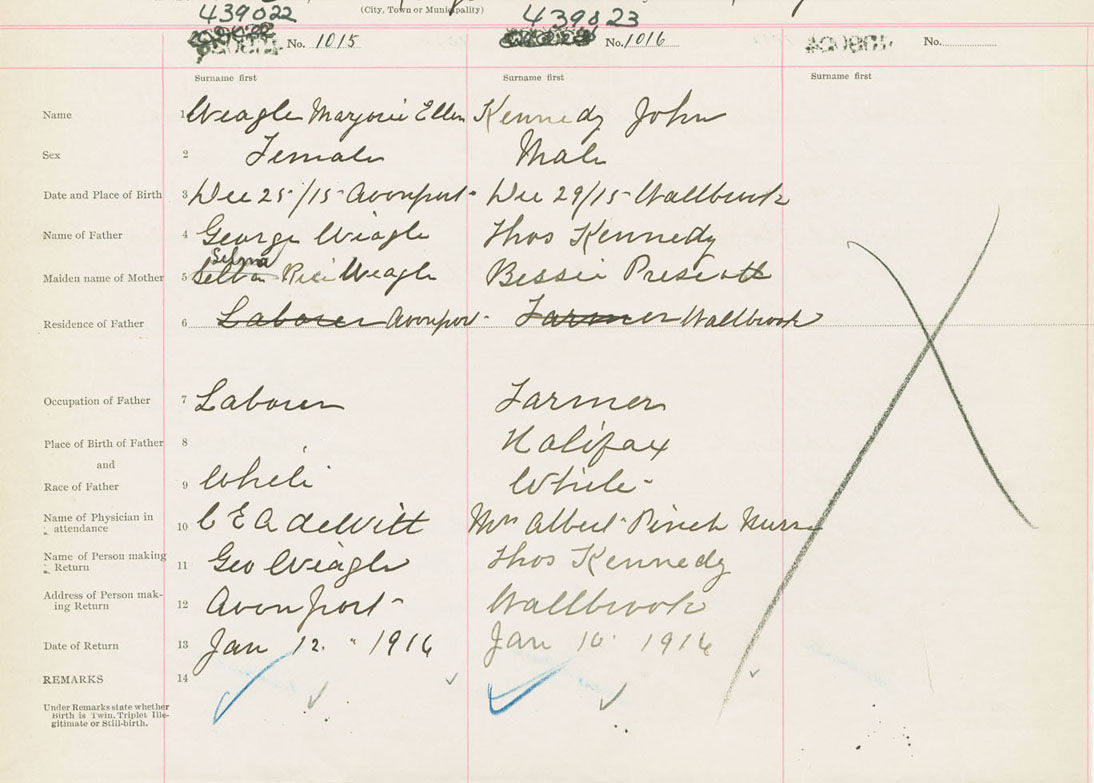 (City, Town or Municipality)
439022 439023
No. 1015 No. 1016 No.
Surname first Surname first Surname first
Name 1 Weagle Marjorie Ellen Kennedy John
Sex 2 Female Male
Date and Place of Birth 3 Dec 25/15 Avonport Dec 29/15 Wallbrook
Name of Father 4 George Weagle Thos Kennedy
Selma
Maiden name of Mother 5 Weagle Bessie Prescott
Residence of Father 6 Laborer Avonport Farmer Wallbrook
Occupation of Father 7 Laborer Farmer
Place of Birth of Father 8 Halifax
and
Race of Father 9 White White
Name of Physician in
attendance 10 C E A deWitt Mrs Albert Pinch Nurse
Name of Person making
Return 11 Geo Weagle Thos Kennedy
Address of Person mak-
ing Return 12 Avonport Wallbrook
Date of Return 13 Jan 12 " 1916 Jan 10 1916
REMARKS 14
Under Remarks state whether
Birth is Twin, Triplet, Ille-
gitimate or Still-birth.